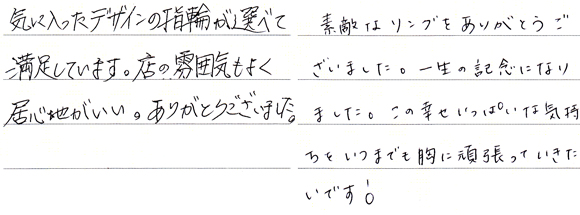 気に入ったデザインの指輪が選べて
満足しています。店の雰囲気もよく
居心地がいい。ありがとうございました。
素敵なリングをありがとうご
ざいました。一生の記念になり
ました。この幸せいっぱいな気持
ちをいつまでも胸に頑張っていきた
いです!